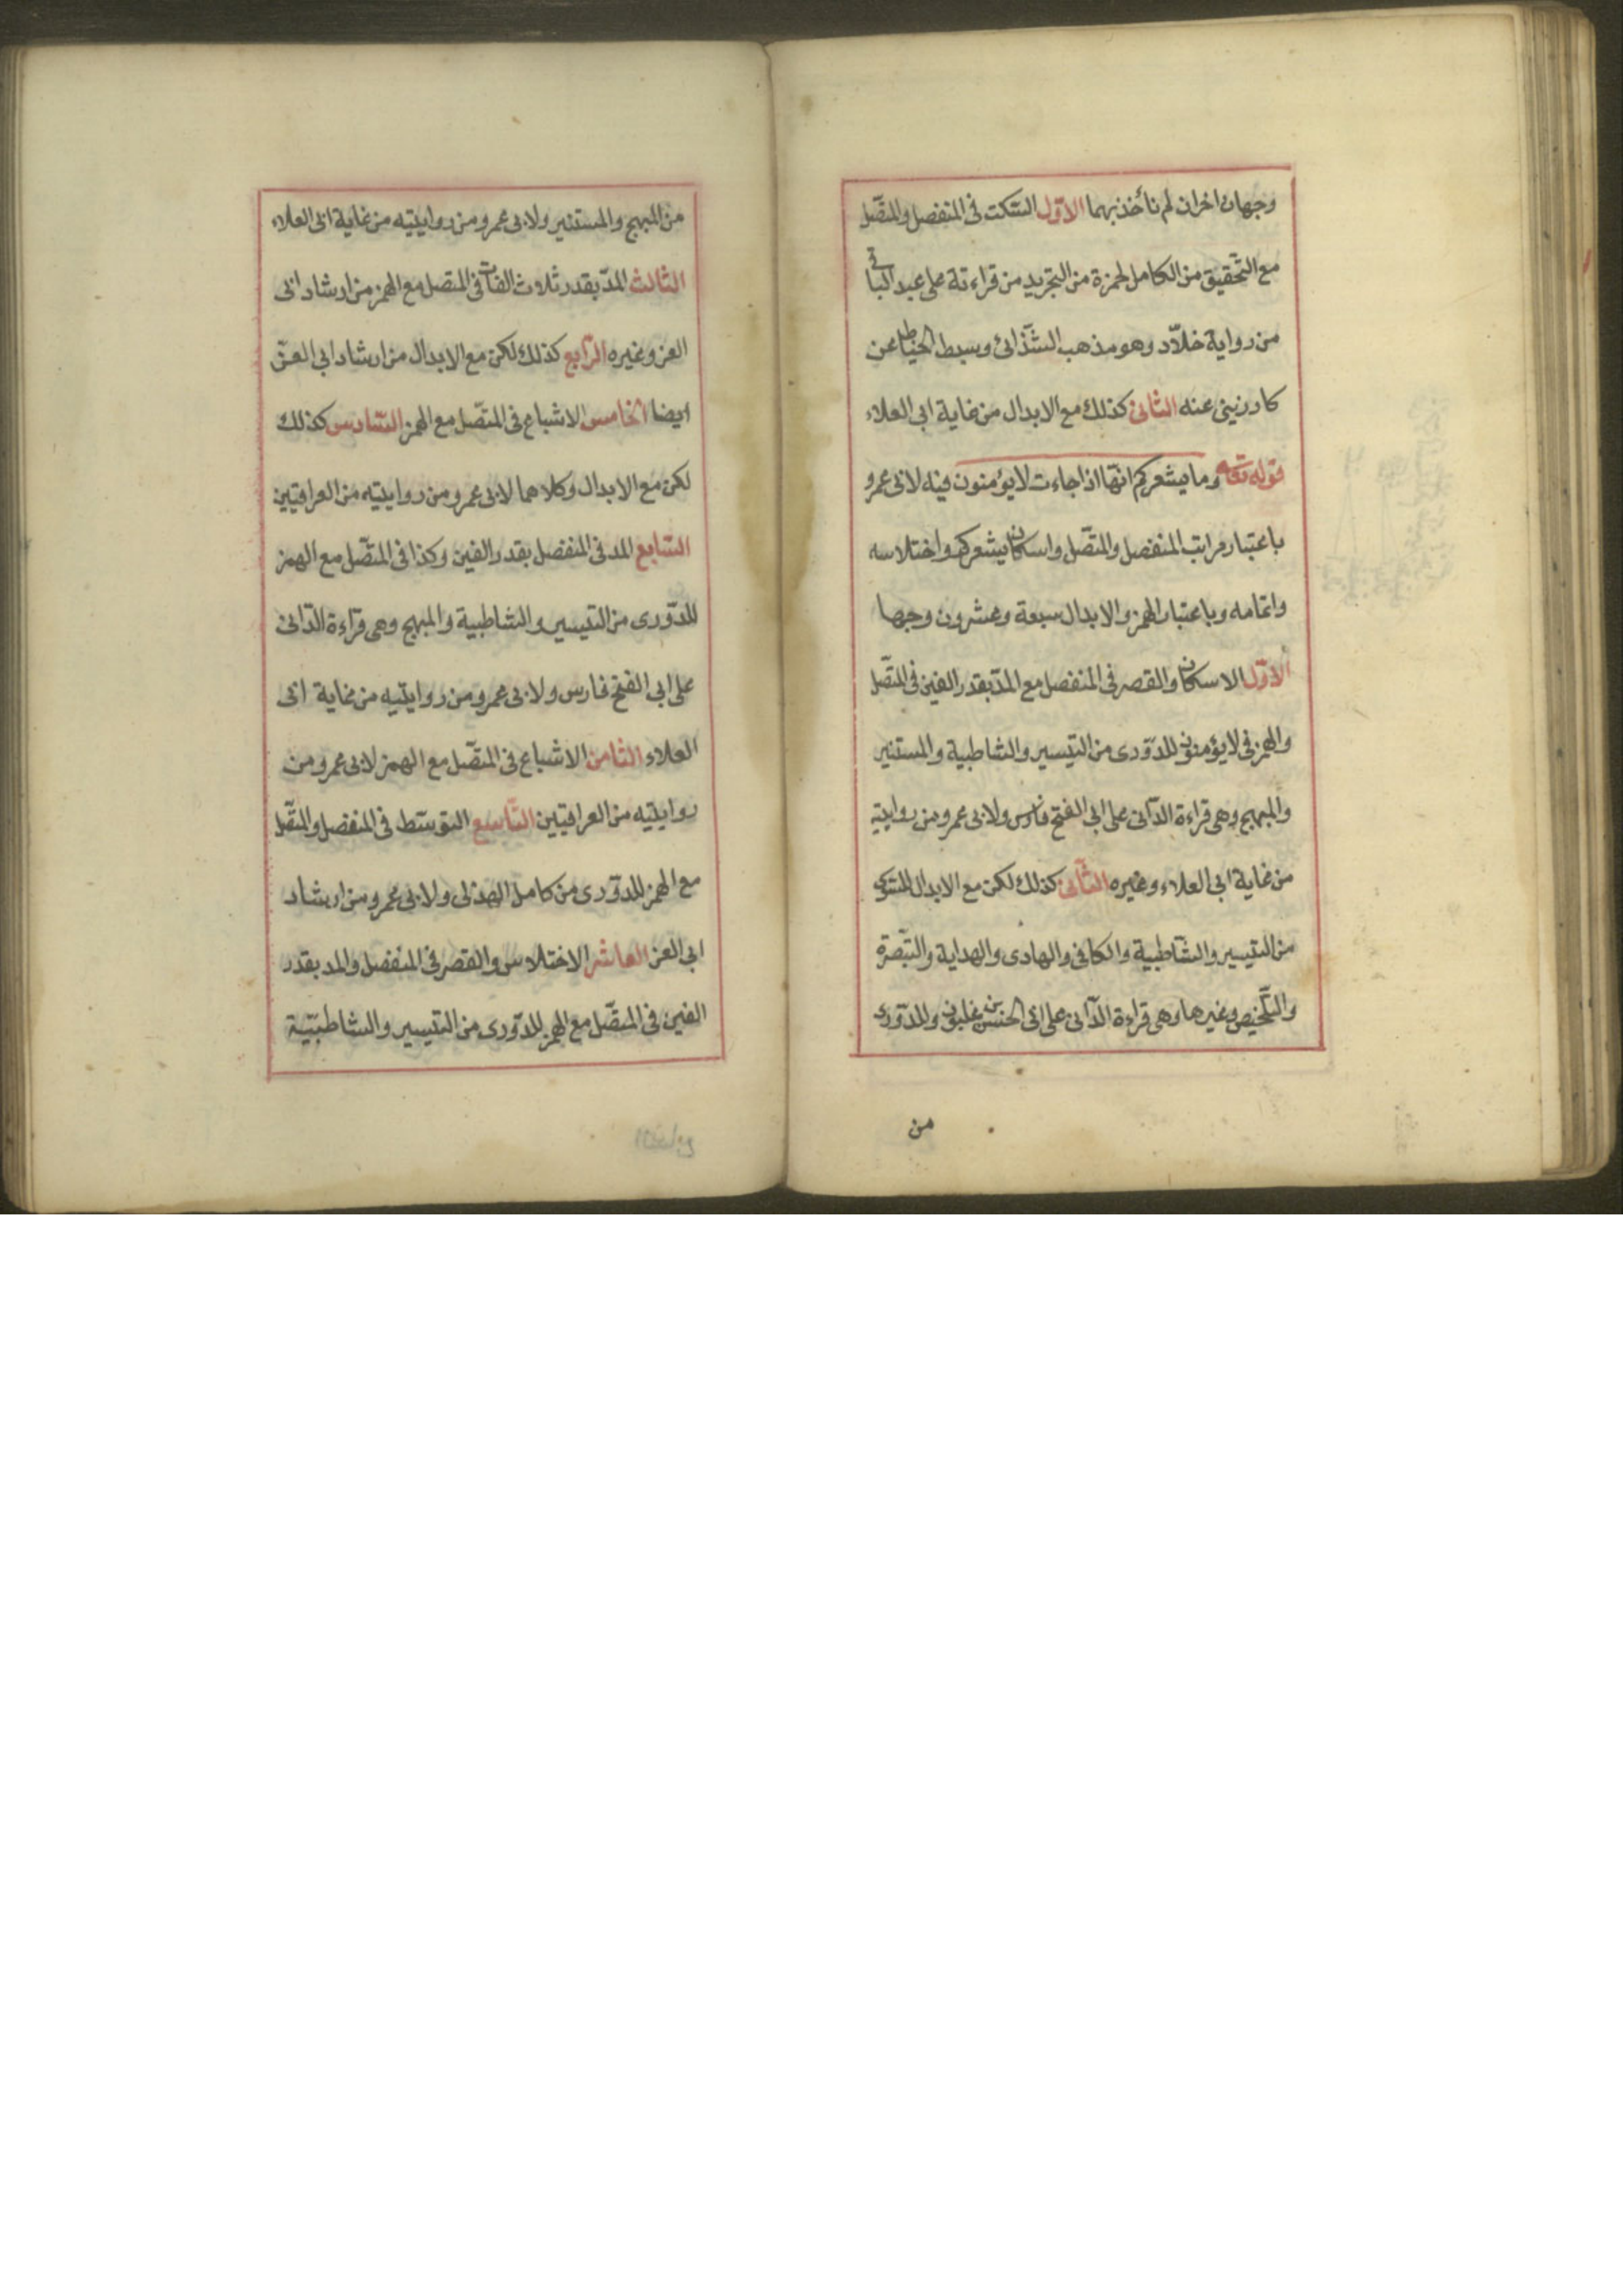 وجهان اخران لم نأخذ بهما الاوّل السّكت فى المنفصل والمتّصل
مع التّحقيق من الكامل لحمزة من التجريد من قراءته على عبد الباقى
من رواية خلّاد وهو مذهب الشّذائى وسبط الخيّاط عن
كارزينى عنه الثانى كذلك مع الابدال من غاية ابى العلاء
قوله تعه وما يشعركم انّها اذا جاءت لا يؤمنون فيه لابى عمرو
باعتبار مراتب المنفصل والمتّصل واسكان يشعركم واختلاسه
واتمامه وباعتبار الهمز والابدال سبعة وعشرون وجها
الاوّل الاسكان والقصر فى المنفصل مع المدّ بقدر الفين فى المتّصل
والهمز فى لا يؤمنون للدّورى من التيسير والشاطبية والمستنير
والمبهج وهى قراءة الدّانى على ابى الفتح فارس ولابى عمرو من روايتيه
من غاية ابى العلاء وغيره الثّانى كذلك لكن مع الابدال للسّوسى
من التيسير والشّاطبية والكافى والهادى والهداية والتّبصرة
والتّلخيص وغيرها وهى قراءة الدّانى على ابى الحسن بن غلبون وللدّورى
من
من المبهج والمستنير ولابى عمرو من روايتيه من غاية ابى العلاء
الثالث المدّ بقدر ثلاث الفات فى المتصل مع الهمز من ارشاد ابى
العز وغيره الرّابع كذلك لكن مع الابدال من ارشاد ابى العزّ
ايضا الخامس الاشباع فى المتّصل مع الهمز السّادس كذلك
لكن مع الابدال وكلاهما لابى عمرو من روايتيه من العراقيّين
السّابع المد فى المنفصل بقدر الفين وكذا فى المتّصل مع الهمز
للدّورى من التيسير والشاطبية والمبهج وهى قراءة الدّانى
على ابى الفتح فارس ولابى عمرو من روايتيه من غاية ابى
العلاء الثامن الاشباع فى المتّصل مع الهمز لابى عمرو من
روايتيه من العراقيّين التّاسع التوسّط فى المنفصل والمتّصل
مع الهمز للدّورى من كامل الهذلى ولابى عمرو من ارشاد
ابى العز العاشر الاختلاس والقصر فى المنفصل والمد بقدر
الفين فى المتّصل مع الهمز للدّورى من التيسير والشاطبيّة